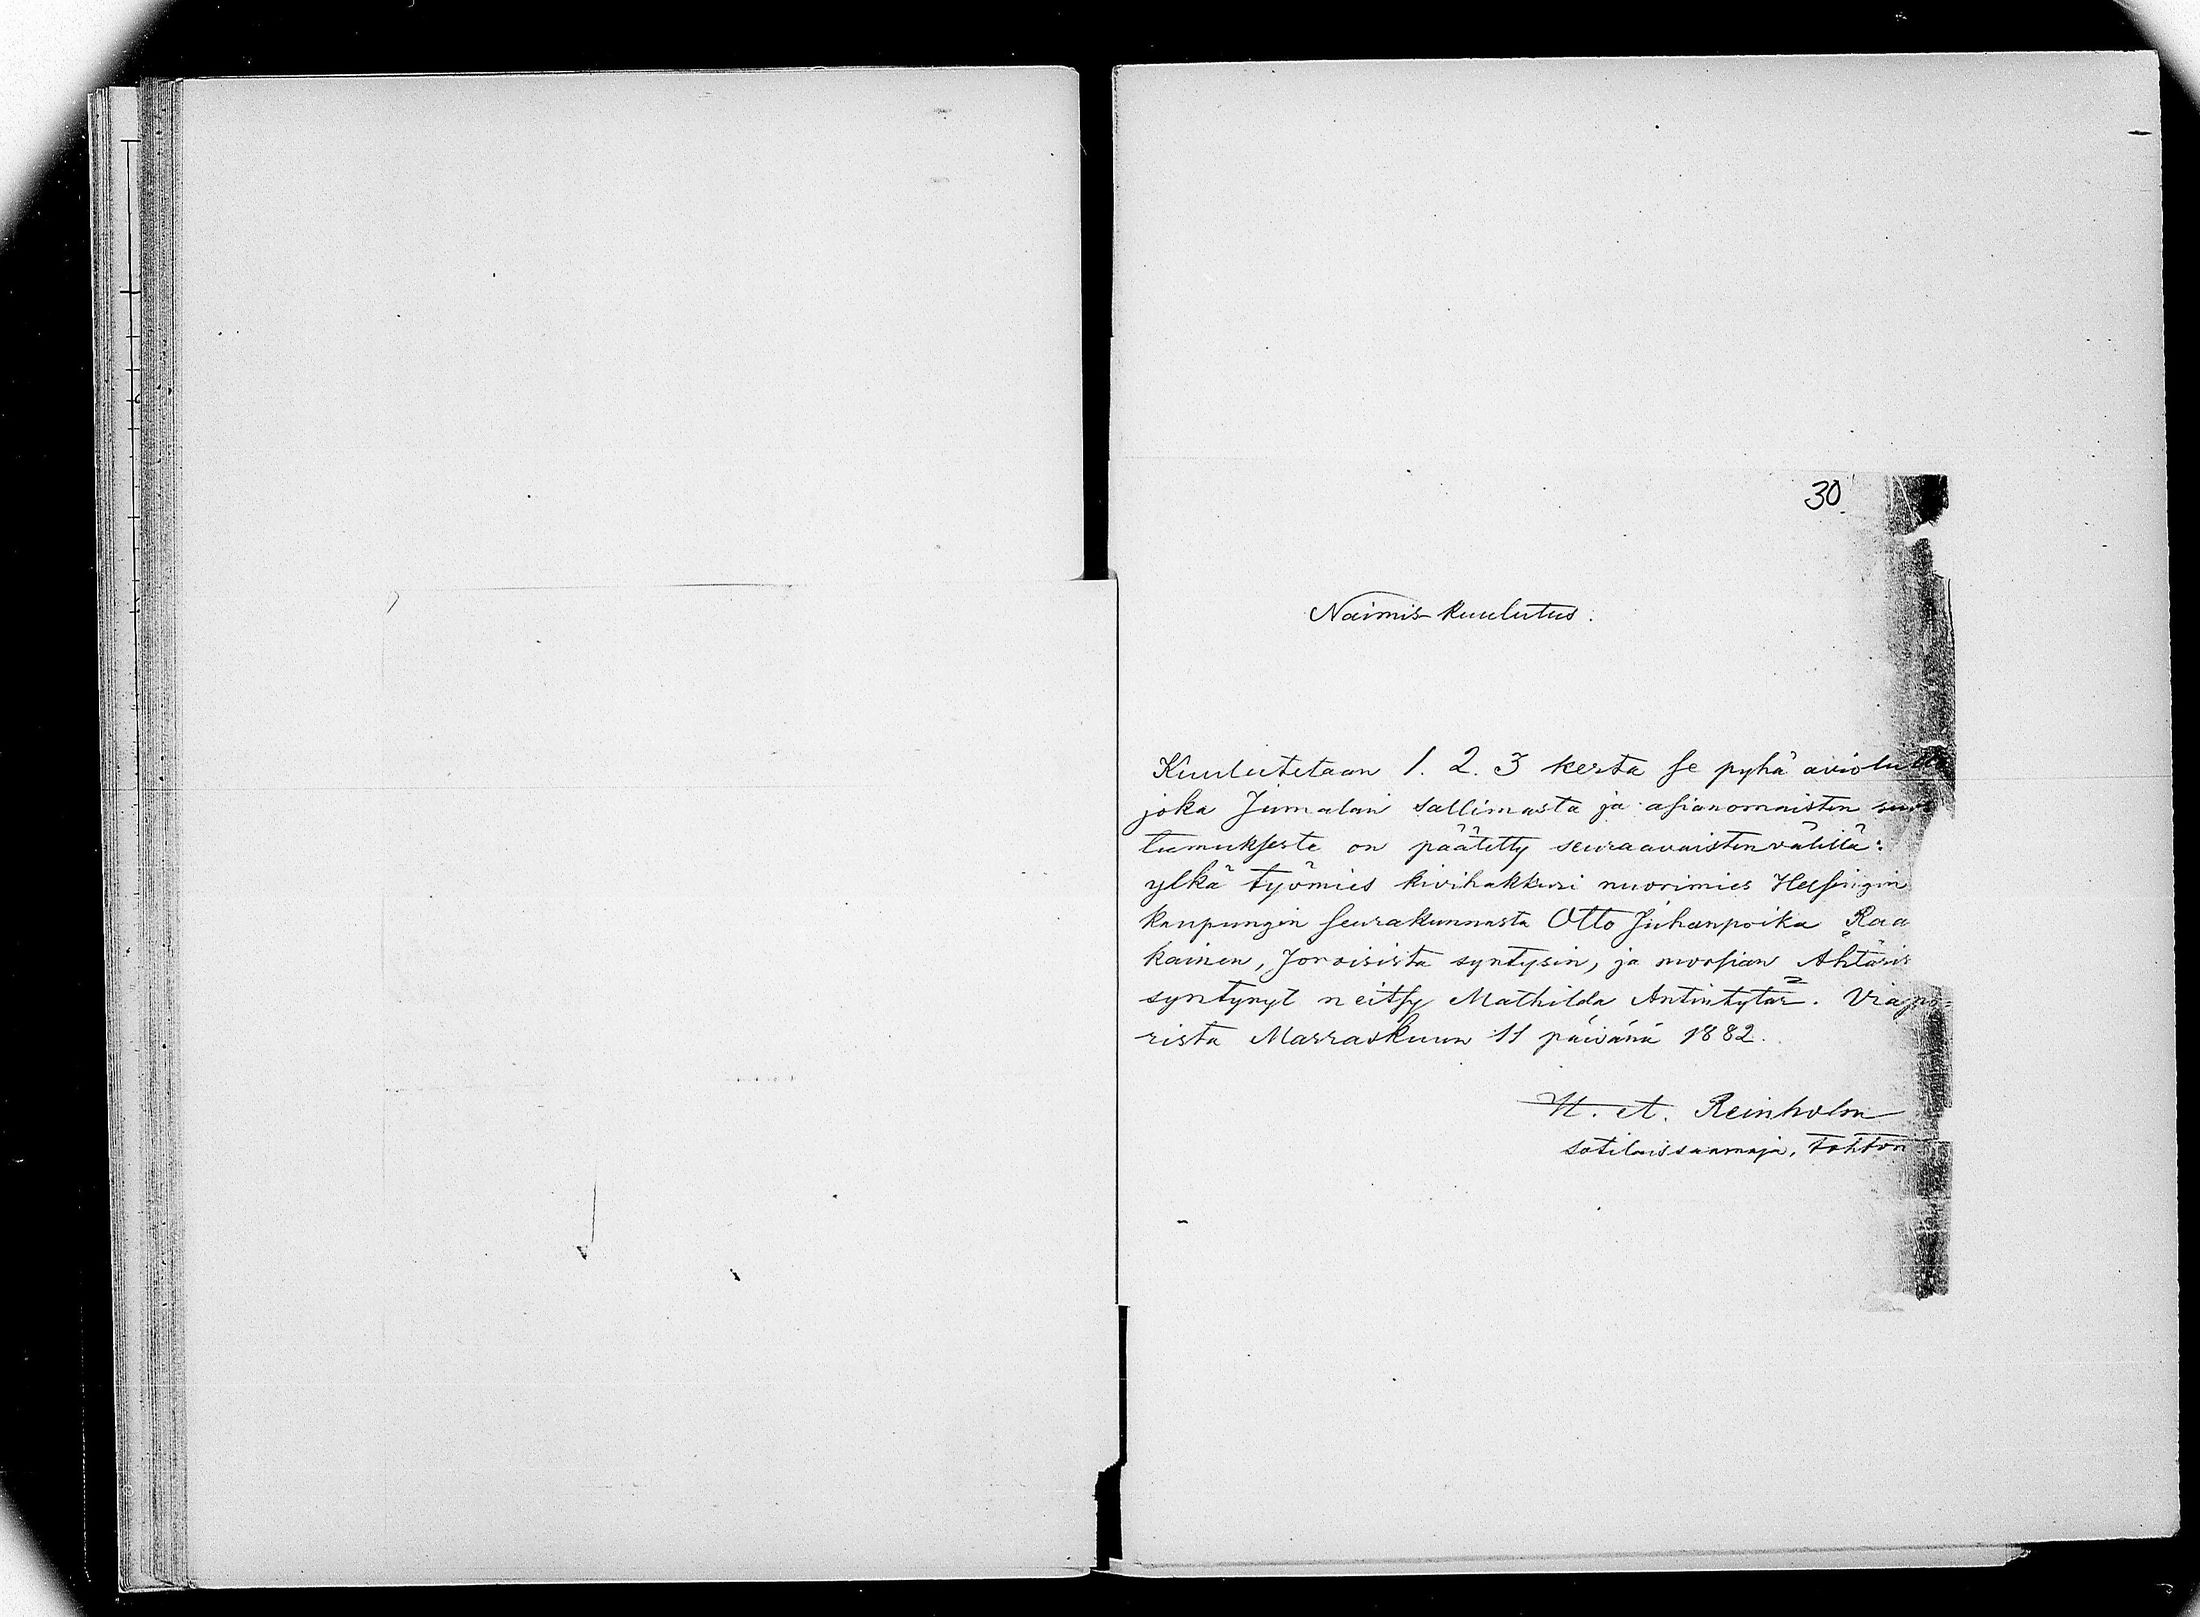 30.
Naimis-kuulutus.
Kuulutetaan 1. 2. 3 kerta se pyhä avioliitto
joka Jumalan sallimasta ja asianomaisten suos
tumuksesta on päätetty seuraavaisten välillä:
ylkä työmies kivihakkuri nuorimies Helsingin
kaupungin seurakunnasta Otto Juhanpoika Raa
kainen, Joroisista syntysin, ja morsian Ahtäris
syntynyt neitsy Mathilda Antintytär. Viapo-
rista Marraskuun 11 päivänä 1882.
Reinholm
sotilaissaarnaja, tohtori